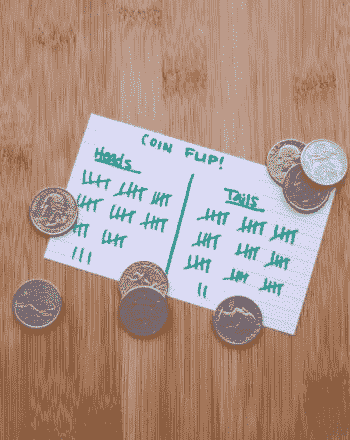 COIN FLIP!
Heads
Tails